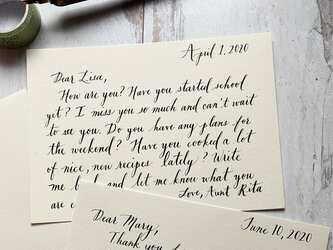 April 1, 2020
Dear Lisa,
How are you? Have you started school
yet? I miss you so much and can't wait
to see you. Do you have any plans for
the weekend? Have you cooked a lot
of nice, new recipes lately? Write
me and let me know what you
are
Love, Aunt Rita
June 10, 2020
Dear Mary,
Thank you